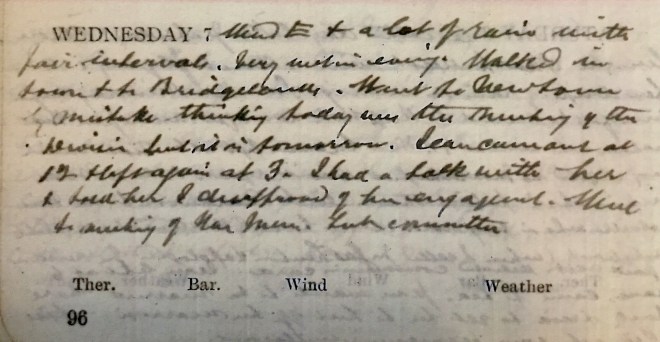 WEDNESDAY 7 Wind E & a lot of rain with
fair intervals. Very wet in evening. Walked in
town & to Bridgetown. Went to Newtown
by mistake thinking today was the meeting of the
but it is tomorrow. Jean came out at
12 & left again at 3. I had a talk with her
& told her I disapproved of her engagement. Went
to meeting of War Mem. Sub committee
Ther. Bar. Wind Weather
96